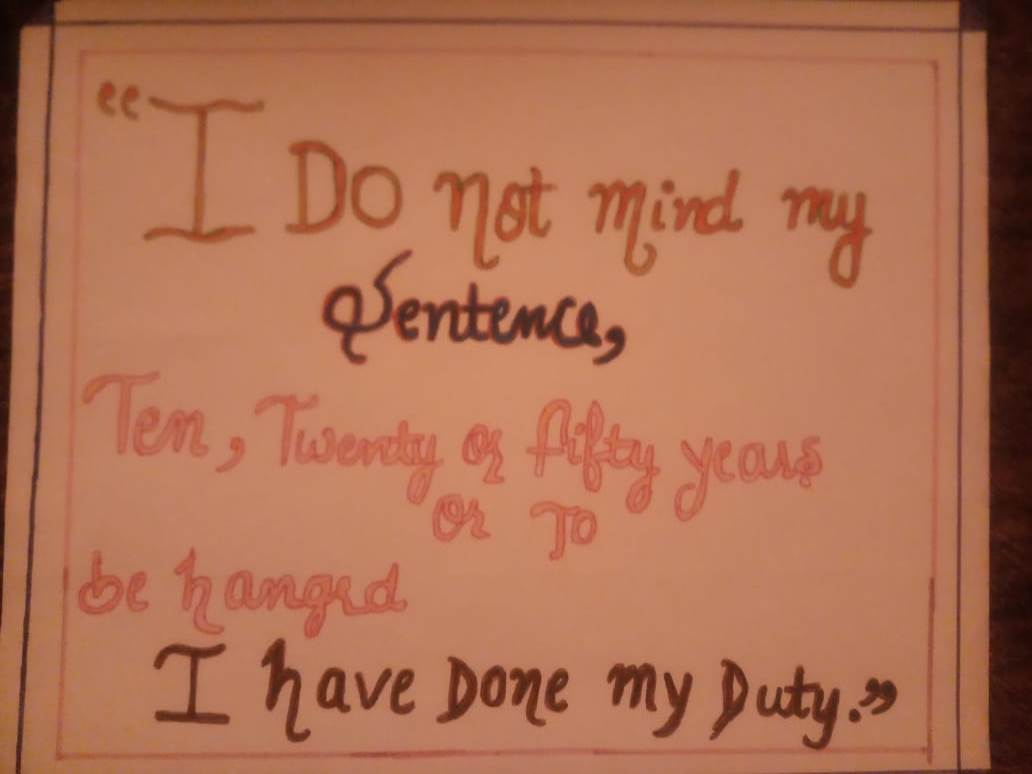 “I Do not mind my
Sentence,
Ten, Twenty or fifty years
or To
be hanged
I have Done my Duty.”